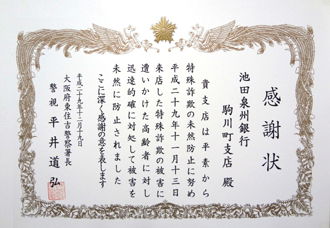 感謝状
池田泉州銀行
駒川町支店 殿
貴支店は平素から
特殊詐欺の未然防止に努め
平成二十九年十一月十三日
来店した特殊詐欺の被害に
遭いかけた高齢者に対し
迅速的確に対処して被害を
未然に防止されました
ここに深く感謝の意を表します
平成二十九年十二月十九日
大阪府東住吉警察署長
警視 平井道弘